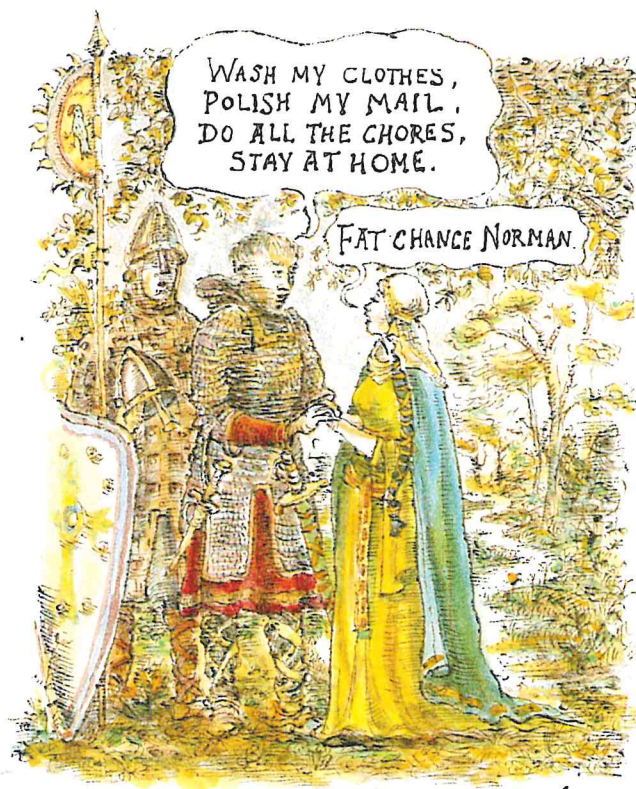 WASH MY CLOTHES,
POLISH MY MAIL,
DO ALL THE CHORES,
STAY AT HOME.
FAT CHANCE NORMAN.